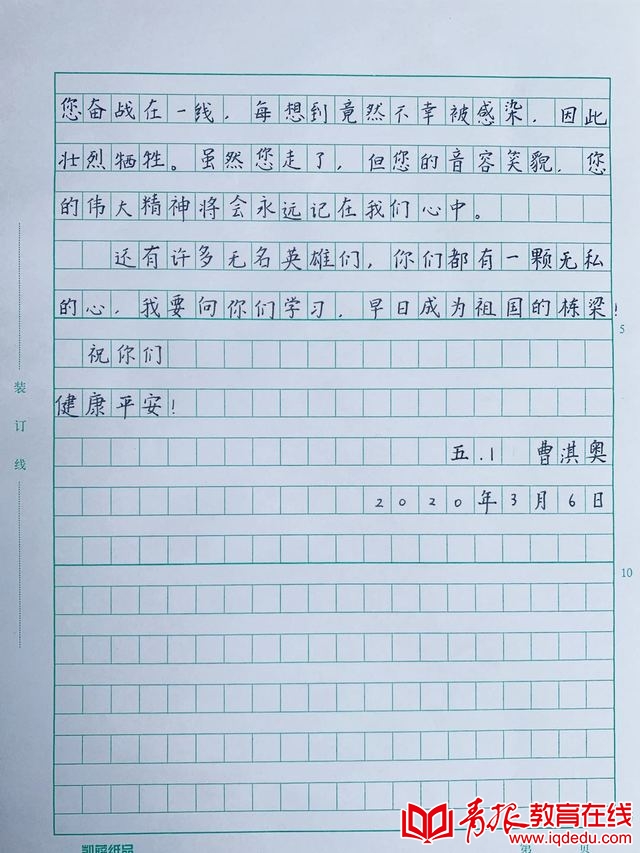 您奋战在一线，每想到竟然不幸被感染，因此
壮烈牺牲。虽然您走了，但您的音容笑貌，您
的伟大精神将会永远记在我们心中。
还有许多无名英雄们，你们都有一颗无私
的心，我要向你们学习，早日成为祖国的栋梁！
5
祝你们
健康平安！
五.1 曹淇奥
2020年3月6日
10
装订线
青报教育在线
www.iqdedu.com
凯爵纸品
第 页